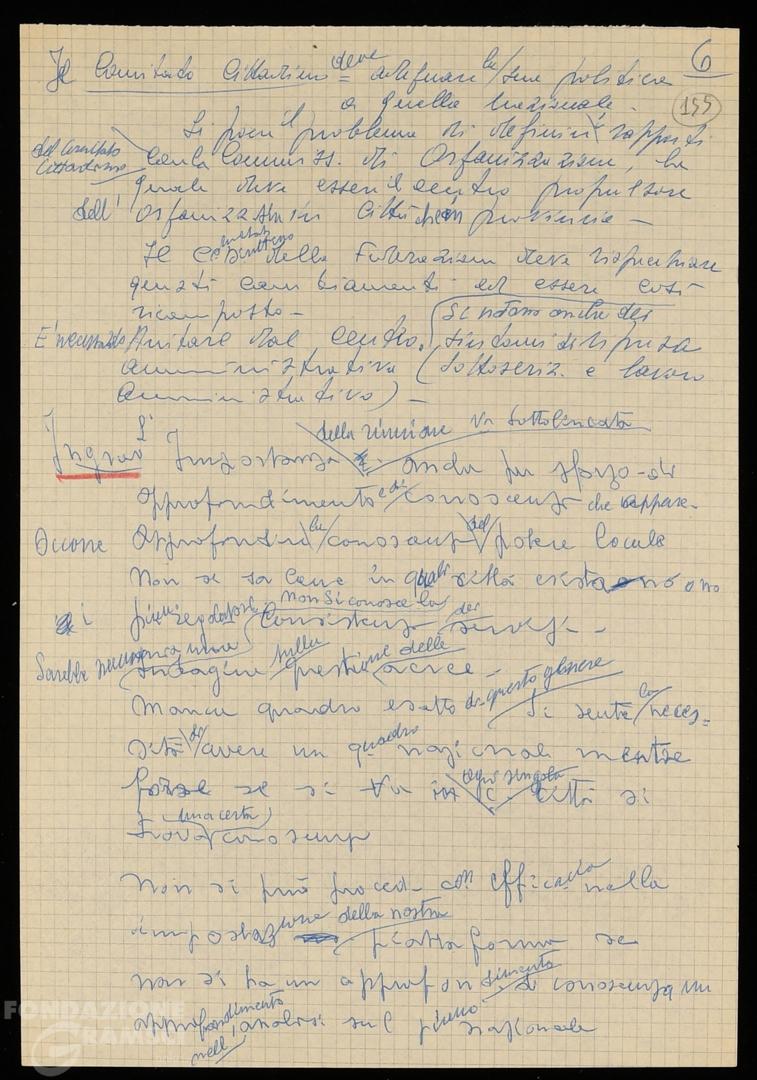 6
155
Il Comitato Cittadino deve adeguare la sua politica
a quella nazionale.
Si pone il problema di definire i rapporti
del Comitato Cittadino con la Commiss. di Organizzazione, la
quale deve essere il centro propulsore
dell' organizzativ in città che in provincia —
Il Comitato della Federazione deve rispecchiare
questi cambiamenti ed essere così
ricomposto —
E' necessario aiutare dal centro. Si notano anche dei
sintomi di ripresa
amministrativa (sottoseriz. e lavoro
amministrativo) —
Ingrao Importanza della riunione va sottolineata
anche per sforzo di
approfondimento e di conoscenza che appare.
Occorre approfondire la conoscenza del potere locale
Non si sa bene in quali città esistano o no
i piani regolatori non si conosce la consistenza dei servizi —
Sarebbe necessaria una indagine sulla questione delle aree —
Manca quadro esatto di questo genere
Si sente la neces=
sità di avere un quadro nazionale mentre
forse se si va in ogni singola città si
trova una certa conoscenza
Non si può proced. con efficacia nella
impostazione della nostra piattaforma se
non si ha un approfondimento di conoscenza un
approfondimento nell' analisi sul piano nazionale
FONDAZIONE
GRAMSCI